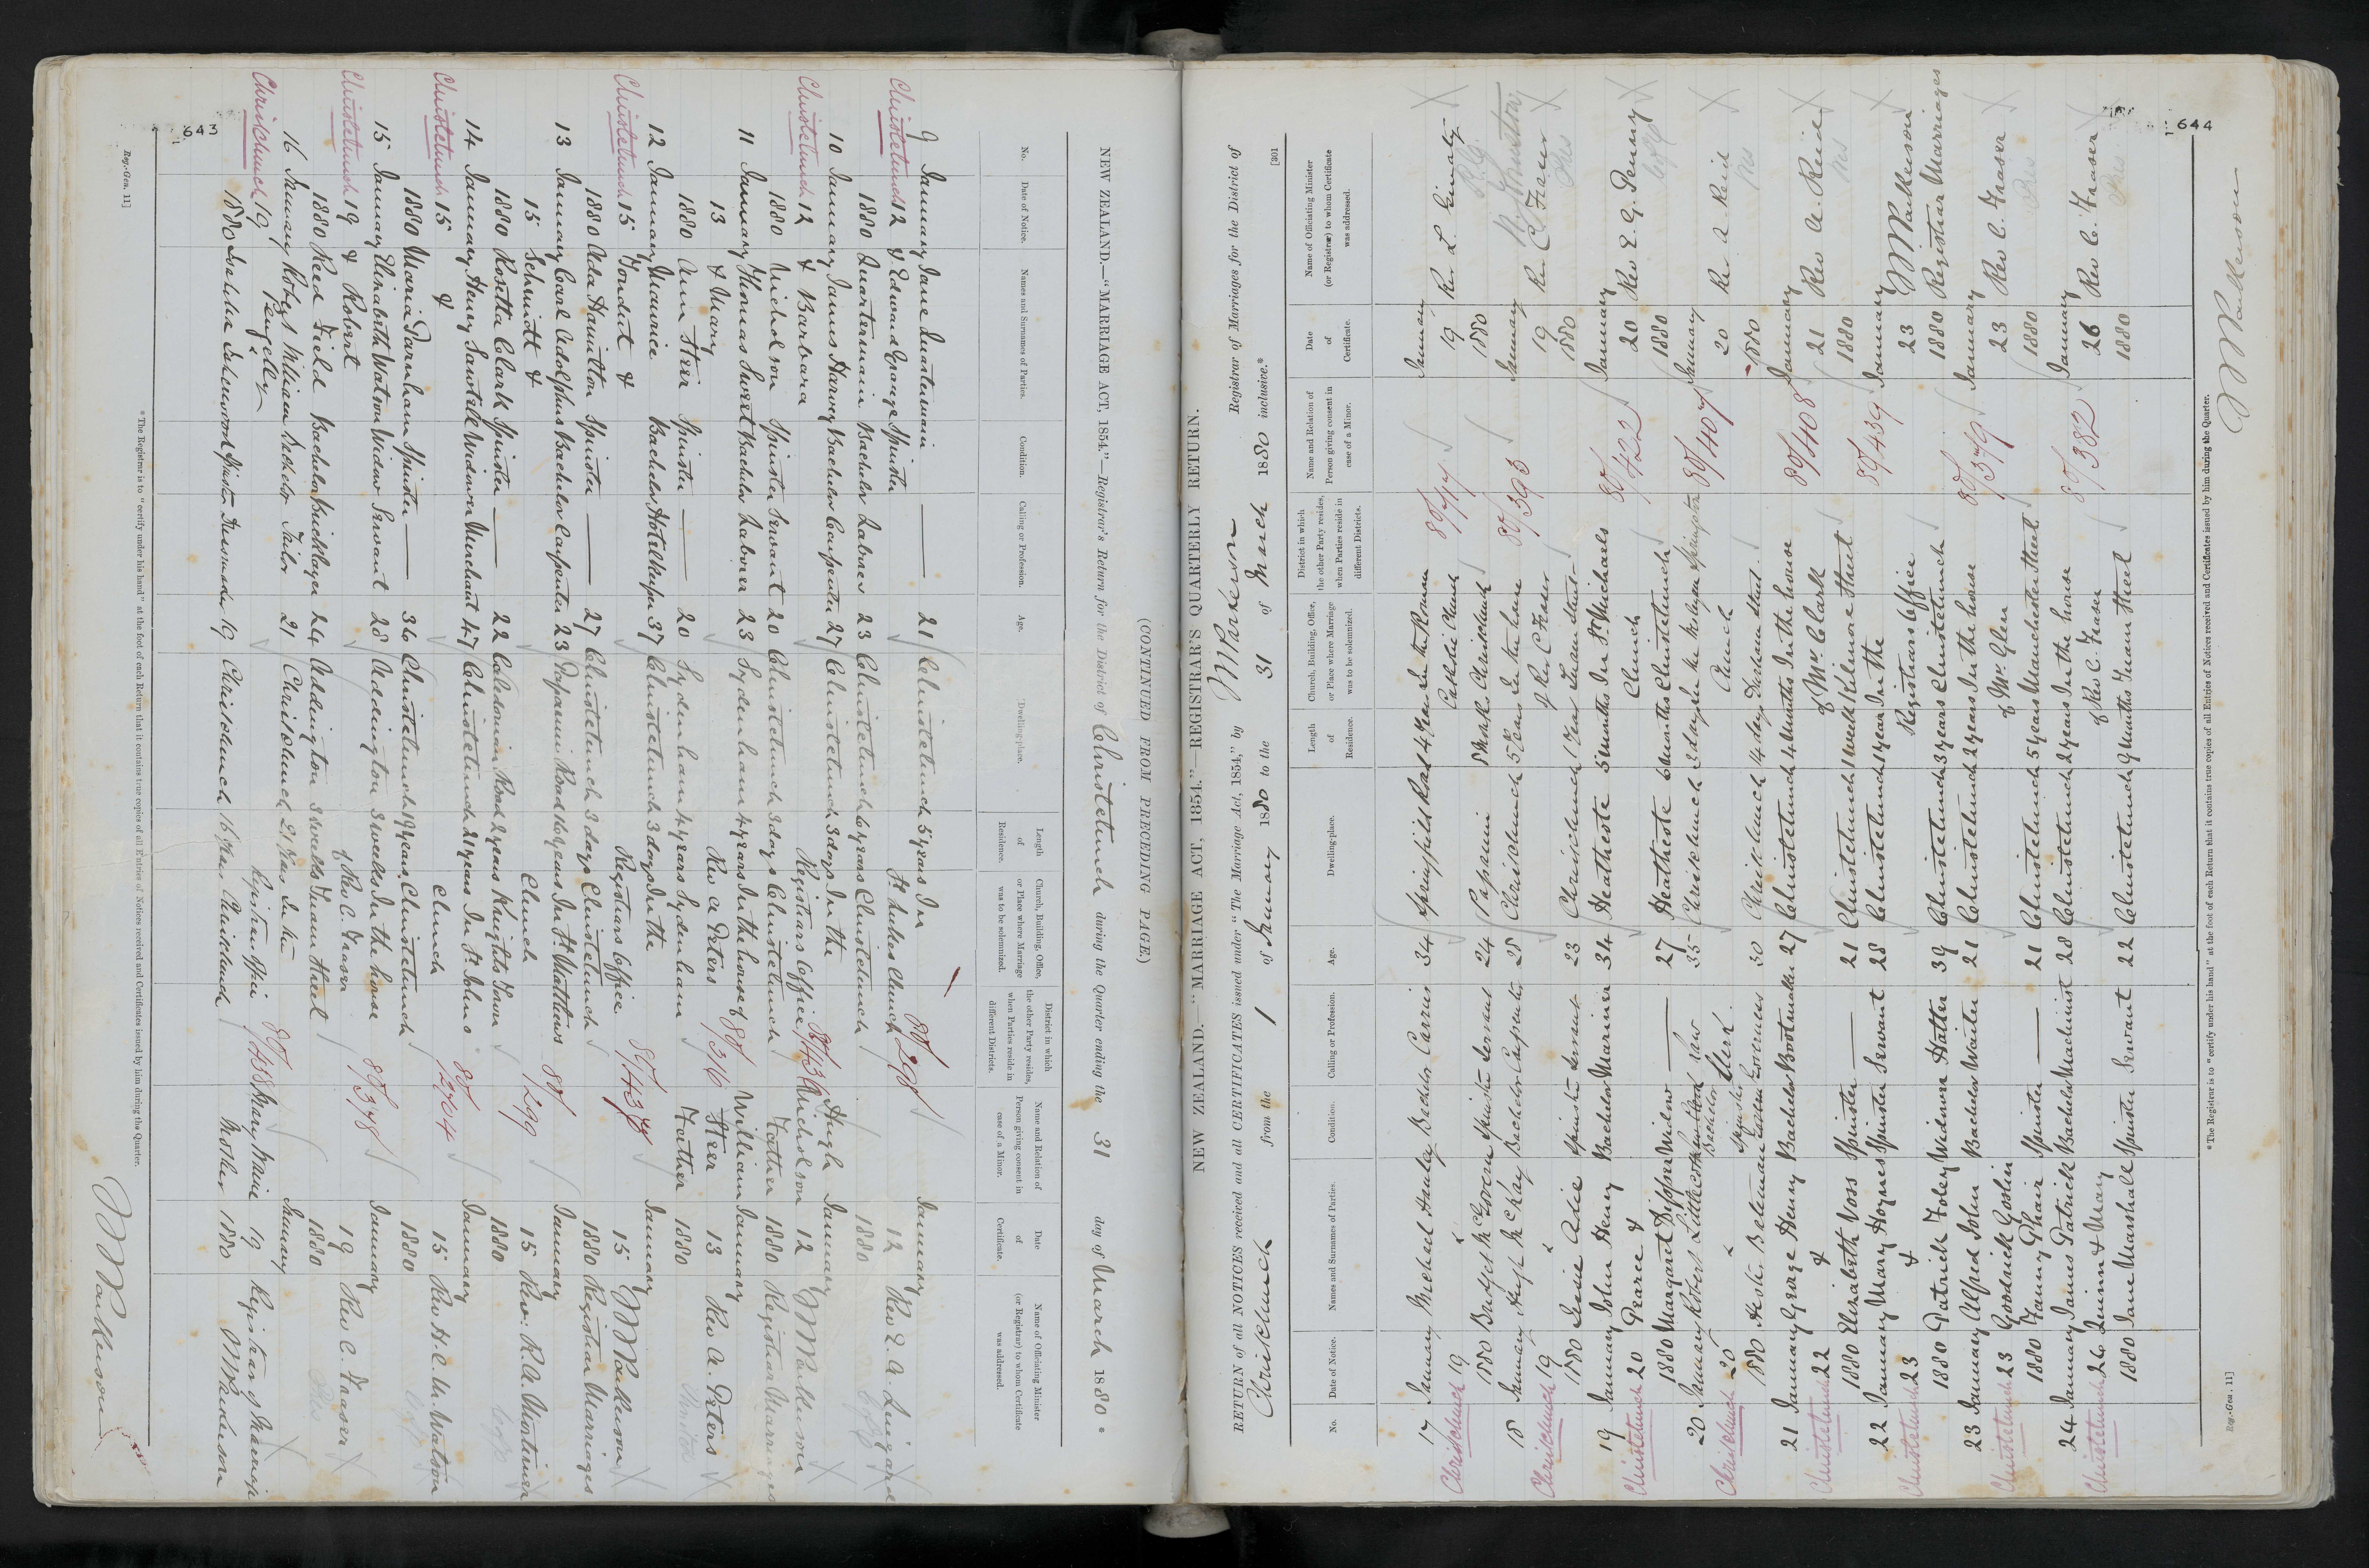 643
Reg.-Gen. 11]
(CONTINUED FROM PRECEDING PAGE.)
NEW ZEALAND.—"MARRIAGE ACT, 1854."—Registrar's Return for the District of Christchurch during the Quarter ending the 31 day of March 1880 *
No.
Date of Notice.
Names and Surnames of Parties.
Condition.
Calling or Profession.
Age.
Dwelling-place.
Length of Residence.
Church, Building, Office, or Place where Marriage was to be solemnized.
District in which the other Party resides, when Parties reside in different Districts.
Name and Relation of Person giving consent in case of a Minor.
Date of Certificate.
Name of Officiating Minister (or Registrar) to whom Certificate was addressed.
9 January Jane Quartermain ——— 21 Christchurch 5 years In January
Christchurch 12 & Edward George Spinster St Lukes Church 80/298 12 Rev E. A. Lingard
1880 Quartermain Bachelor Laborer 23 Christchurch 6 years Christchurch 1880
10 January James Harvey Bachelor Carpenter 27 Christchurch 3 days In the Hugh January
Christchurch 12 & Barbara Registrars Office 80/436 Nicholson 12
1880 Nicholson Spinster Servant 20 Christchurch 3 days Christchurch Father 1880 Registrar Marriages
11 January Thomas Sweet Bachelor Laborer 23 Sydenham 4 years In the house of 80/316 William January
13 & Mary Rev A Peters Steer 13 Rev. A. Peters
1880 Ann Steer Spinster ——— 20 Sydenham 4 years Sydenham Father 1880
12 January Maurice Bachelor Hotelkeeper 37 Christchurch 3 days In the January
Christchurch 15 & Registrars Office 80/437 15
1880 Ada Hamilton Spinster ——— 27 Christchurch 3 days Christchurch 1880 Registrar Marriages
13 January Carl Adolphus Bachelor Carpenter 23 Papanui Road 16 years In St Matthews 80/299 January
15 Schmidt & Church 15 Rev. R. A. Mortimer
1880 Rosetta Clark Spinster ——— 22 Caledonian Road 2 years Knights Town 1880
14 January Henry Widower Merchant 47 Christchurch 21 years In St Johns January
Christchurch 15 & Church 15 Rev H. C. M. Watson
1880 Maria Parnham Spinster ——— 36 Christchurch 19 years Christchurch 1880
15 January Elizabeth Watson Widow Servant 28 Addington 3 weeks In the house 80/378 January
Christchurch 19 & Robert of Rev C. Fraser 19 Rev C. Fraser
1880 Reed Field Bachelor Bricklayer 24 Addington 3 weeks Tuam Street 1880
16 January Robert William Bachelor Tailor 21 Christchurch 21 years In the January
Christchurch 19 Pengelly Registrars Office 80/438 19 Registrar of Marriages
1880 Isabella Isherwood Spinster Dressmaker 19 Christchurch Christchurch Mother 1880
* The Registrar is to "certify under his hand" at the foot of each Return that it contains true copies of all Entries of Notices received and Certificates issued by him during the Quarter.
644
[301
NEW ZEALAND.—"MARRIAGE ACT, 1854."—REGISTRAR'S QUARTERLY RETURN.
RETURN of all NOTICES received and all CERTIFICATES issued under "The Marriage Act, 1854," by Registrar of Marriages for the District of
Christchurch from the 1 of January 1880 to the 31 of March 1880 inclusive.*
No.
Date of Notice.
Names and Surnames of Parties.
Condition.
Calling or Profession.
Age.
Dwelling-place.
Length of Residence.
Church, Building, Office, or Place where Marriage was to be solemnized.
District in which the other Party resides, when Parties reside in different Districts.
Name and Relation of Person giving consent in case of a Minor.
Date of Certificate.
Name of Officiating Minister (or Registrar) to whom Certificate was addressed.
17 January Michael Hanley Bachelor Carrier 34 Springfield Road 4 years In the Roman January
Christchurch 19 & Catholic Church 19 Rev L. Ginaty
1880 Bridget McGovern Spinster Servant 24 Papanui Christchurch 1880
18 January Hugh McKay Bachelor Carpenter 28 Christchurch 5 years In the house 80/393 January
Christchurch 19 & of Rev C Fraser 19 Rev C. Fraser
1880 Jessie Adie Spinster Servant 23 Christchurch 1 year Tuam Street 1880
19 January John Henry Bachelor Mariner 34 Heathcote 5 months In St Michaels 80/422 January
Christchurch 20 Pearce & Church 20 Rev E. G. Penny
1880 Margaret Widow ——— 27 Heathcote 6 months Christchurch 1880
20 January Robert Bachelor Law Clerk 35 Christchurch 3 days In the 80/407 January
Christchurch 20 & Church 20 Rev A. Reid
1880 Bateman Spinster Governess 30 Christchurch 14 days Durham Street 1880
21 January George Henry Bachelor Bootmaker 27 Christchurch 4 months In the house 80/408 January
Christchurch 22 & of Mr. Clark 21 Rev A. Reid
1880 Elizabeth Voss Spinster ——— 21 Christchurch 1 week Kilmore Street 1880
22 January Mary Hoynes Spinster Servant 28 Christchurch 1 year In the 80/439 January
Christchurch 23 & Registrars Office 23
1880 Patrick Foley Widower Hatter 39 Christchurch 3 years Christchurch 1880 Registrar Marriages
23 January Alfred John Bachelor Waiter 21 Christchurch 2 years In the house 80/379 January
Christchurch 23 Goodrick Goslin of Mr. Glen 23 Rev C. Fraser
1880 Fanny Phair Spinster ——— 21 Christchurch 5 years Manchester Street 1880
24 January James Patrick Bachelor Machinist 28 Christchurch 2 years In the house 80/382 January
Christchurch 26 Quinn & Mary of Rev C. Fraser 26 Rev C. Fraser
1880 Jane Marshall Spinster Servant 22 Christchurch 9 months Tuam Street 1880
* The Registrar is to "certify under his hand" at the foot of each Return that it contains true copies of all Entries of Notices received and Certificates issued by him during the Quarter.
Reg.-Gen. 11]